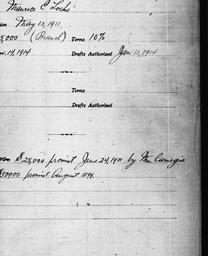 Maurice C. Locke
May 13, 1911.
5,000 (Branch) Terms 10%
v. 19, 1914 Drafts Authorized Jan. 10, 1914
Terms
Drafts Authorized
$25,000 promist June 24, 1911 by Mr. Carnegie
promist August